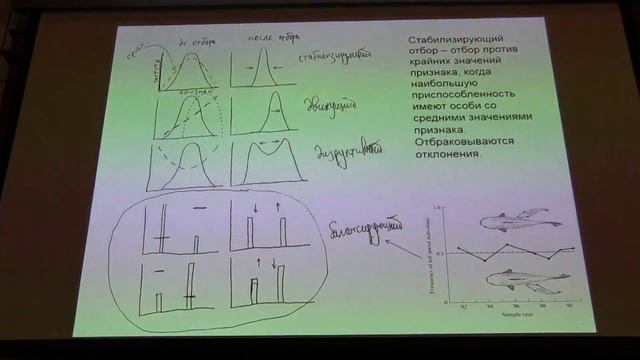 до отбора
после отбора
присп.
частота
признак
стабилизирующий
движущий
дизруктивный
балансирующий
Стабилизирующий
отбор – отбор против
крайних значений
признака, когда
наибольшую
приспособленность
имеют особи со
средними значениями
признака.
Отбраковываются
отклонения.
Frequency of left-jawed individuals
1.0
0.5
'82 '84 '86 '88 '90
Sample year